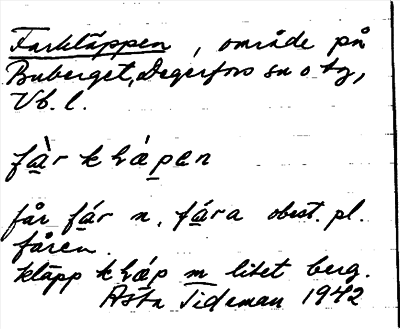 Farkläppen, område på
Buberget, Degerfors sn o tg,
Vb. l.
får
får fár n. fára obest. pl.
fåren.
kläpp m litet berg.
Asta Tideman 1942